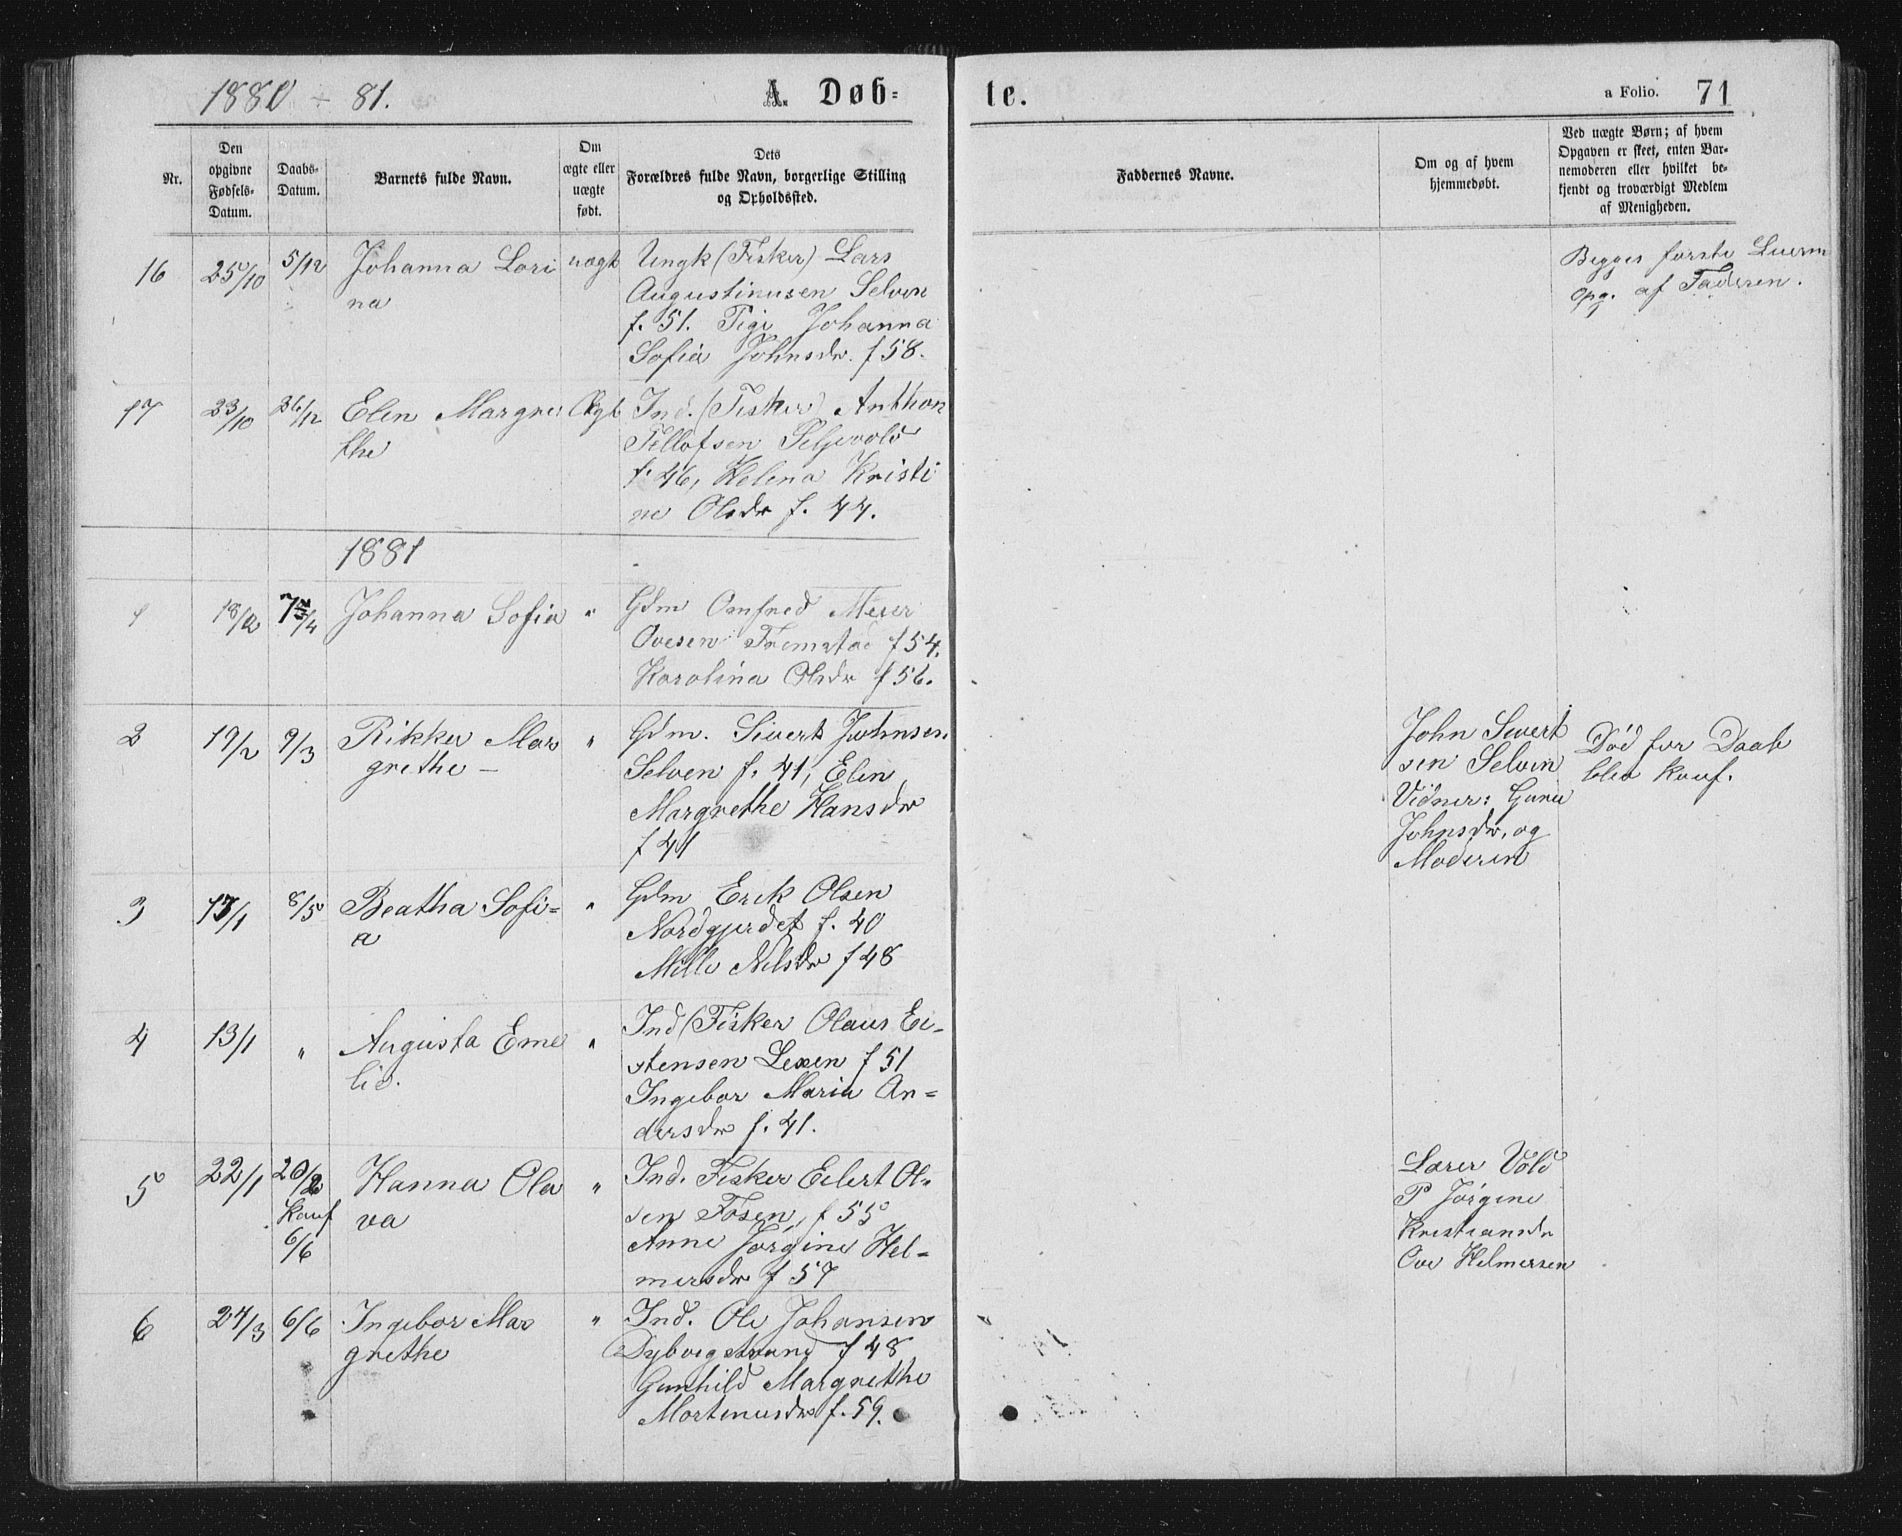 1880 - 81. A. Døb-
te. a Folio. 71
Nr.
Den
opgivne
Fødsels-
Datum.
Daabs-
Datum.
Barnets fulde Navn.
Om
ægte eller
uægte
født.
Dets
Forældres fulde Navn, borgerlige Stilling
og Opholdssted.
Faddernes Navne.
Om og af hvem
hjemmedøbt.
Ved uægte Børn; af hvem
Opgaven er skeet, enten Bar-
nemoderen eller hvilket be-
kjendt og troværdigt Medlem
af Menigheden.
16 25/10 5/12 Johanna Lori uægt Ungk (Fisker) Lars
na Augustinusen Selven
f. 51. Pige Johanna
Sofia Johnsdr. f 58.
Begges første Leierm
opg. af Faderen.
17 23/10 26/12 Elen Margre Ægt Ind. (Fisker) Anthon
the Tellofsen Seljevold
f. 46, Helena Kristi
ne Olsdr f. 44.
1881
1 18/2 Johanna Sofia " Gdm Arnfred Meier
Ovesen Fremstad f 54.
Karolina Olsdr f 56.
2 19/2 9/3 Rikker Mar " Gdm. Sivert Johnsen
grethe - Selven f. 41, Elen
Margrethe Hansdr
f 41
John Sivert
sen Selven
Vidner: Guru
Johnsdr. og
Moderen
Død før Daab
blev konf.
3 17/1 8/5 Beatha Sofi- " Gdm Erik Olsen
a Nordgjerdet f. 40
Mille Nilsdr f 48
4 13/1 " Augusta Eme " Ind (Fisker Olaus Ei-
lie. stensen Lexen f 51
Ingebor Maria An-
dersdr f. 41.
5 22/1 20/2 Hanna Ola " Ind. Fisker Eilert Ol-
Konf va sen Fosen f 55
6/6 Anne Jørgine Hel-
mersdr f 57
Lærer Vold
P Jørgine
Kristiansdr
Ove Helmersen
6 24/3 6/6 Ingebor Mar " Ind. Ole Johansen
grethe Dybvigstrand f 48
Gunhild Margrethe
Mortinusdr f. 59.